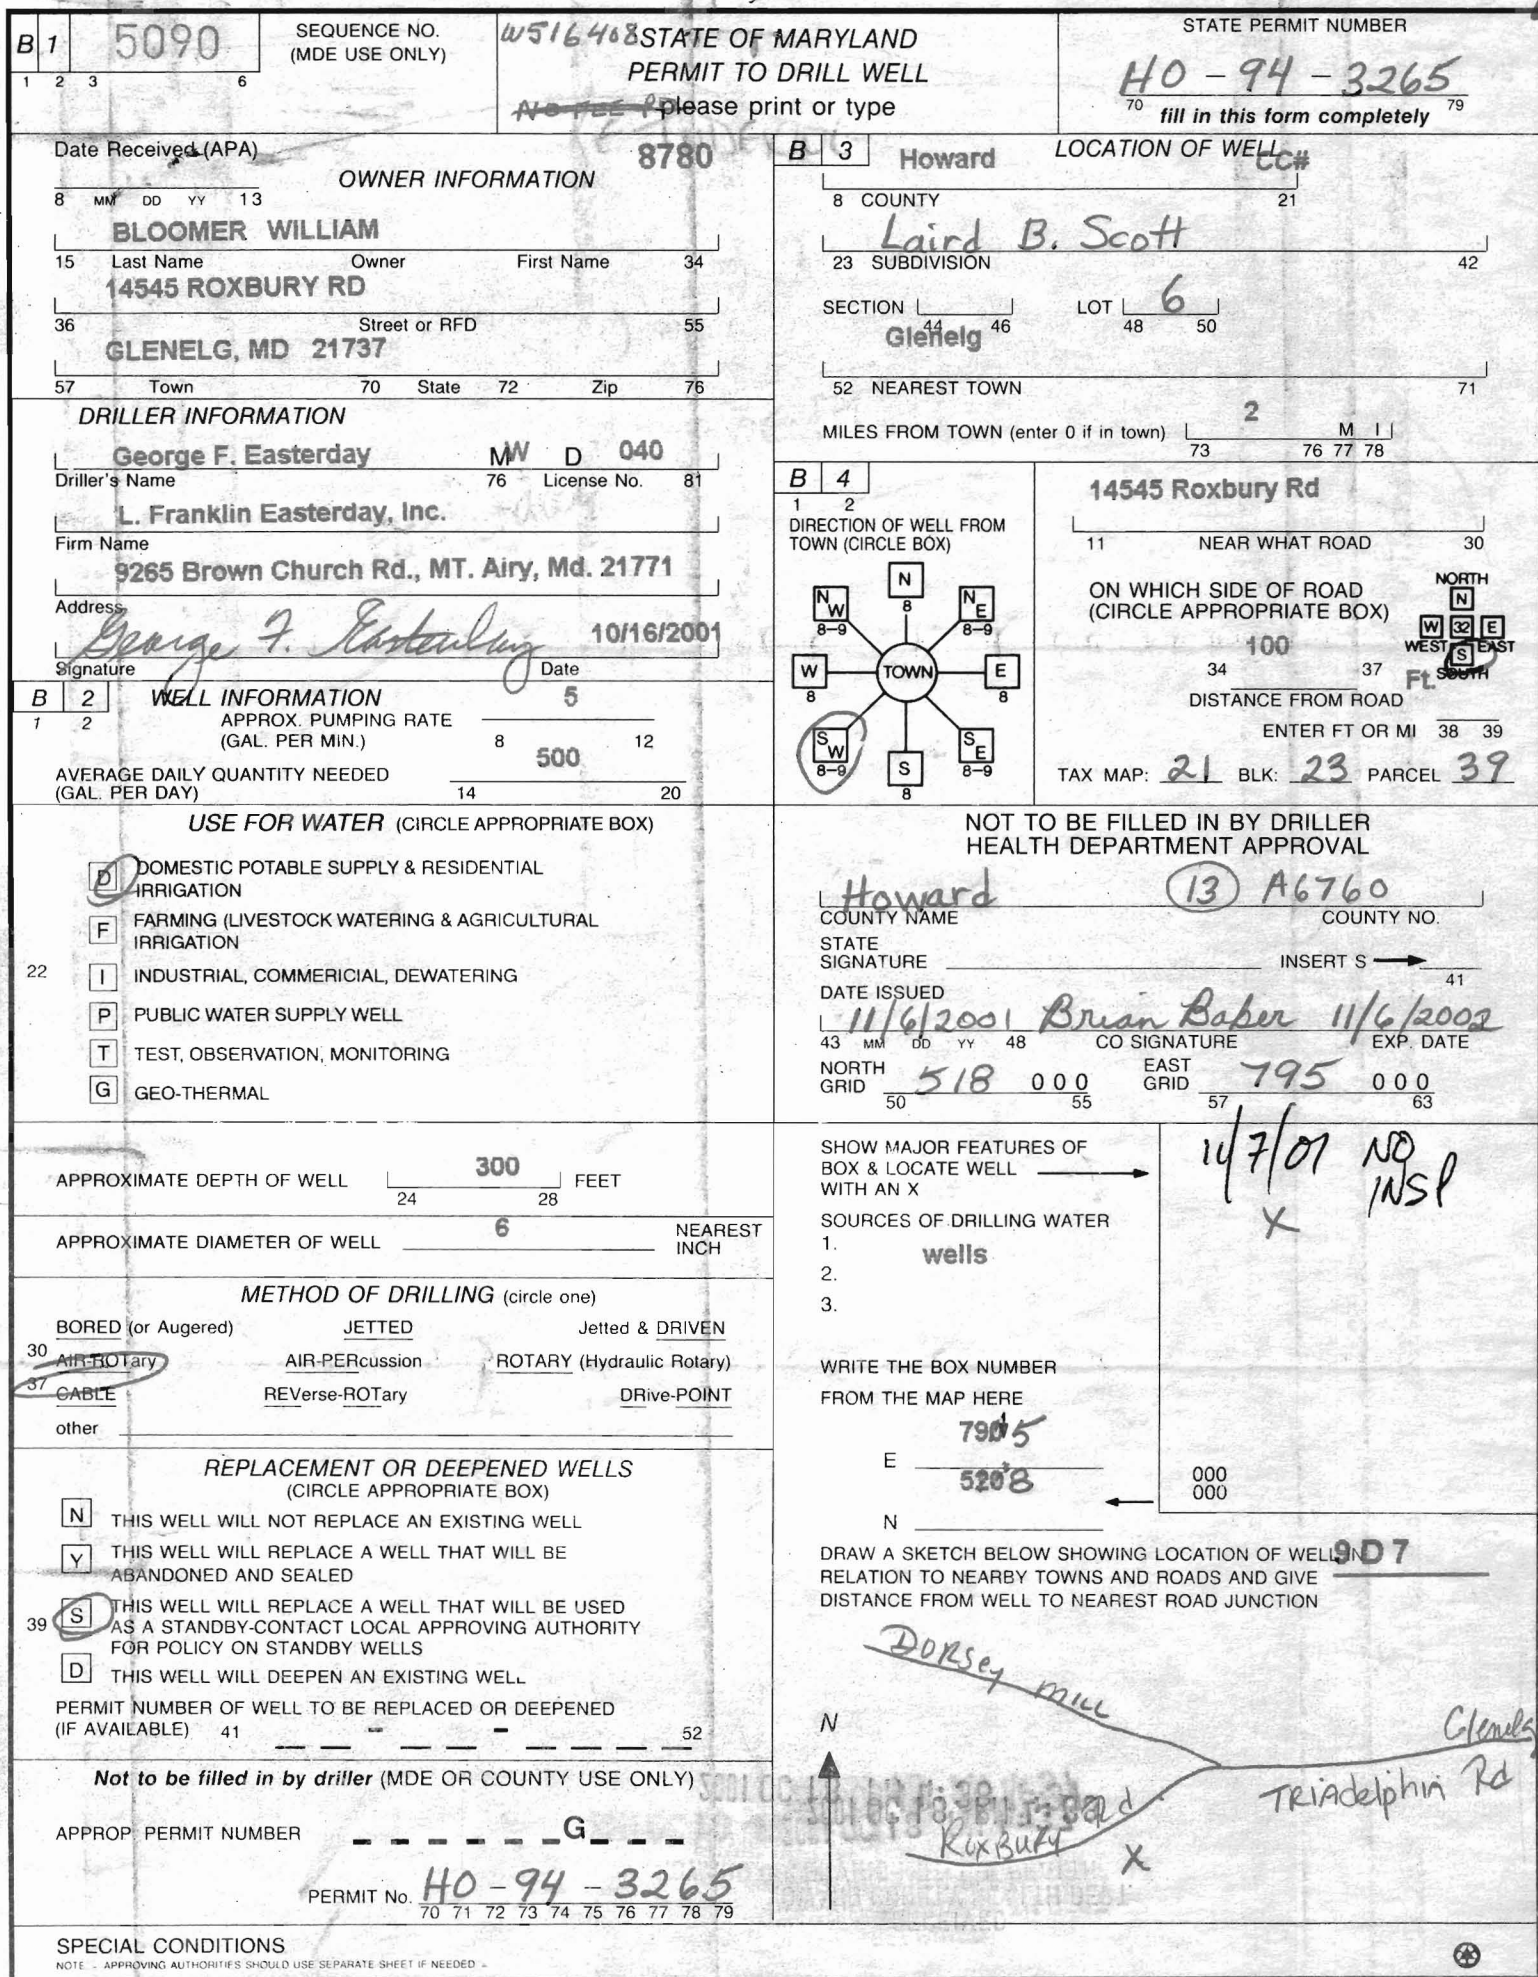 B 1 5090
1 2 3 6
SEQUENCE NO.
(MDE USE ONLY)
W516408 STATE OF MARYLAND
PERMIT TO DRILL WELL
please print or type
STATE PERMIT NUMBER
HO - 94 - 3265
70 79
fill in this form completely
Date Received (APA)
8780
OWNER INFORMATION
8 MM DD YY 13
BLOOMER WILLIAM
15 Last Name Owner First Name 34
14545 ROXBURY RD
36 Street or RFD 55
GLENELG, MD 21737
57 Town 70 State 72 Zip 76
DRILLER INFORMATION
George F. Easterday MW D 040
Driller's Name 76 License No. 81
L. Franklin Easterday, Inc.
Firm Name
9265 Brown Church Rd., MT. Airy, Md. 21771
Address
George F. Easterday 10/16/2001
Signature Date
B 2 WELL INFORMATION
1 2
APPROX. PUMPING RATE
(GAL. PER MIN.) 5
8 12
AVERAGE DAILY QUANTITY NEEDED
(GAL. PER DAY) 500
14 20
USE FOR WATER (CIRCLE APPROPRIATE BOX)
D DOMESTIC POTABLE SUPPLY & RESIDENTIAL
IRRIGATION
F FARMING (LIVESTOCK WATERING & AGRICULTURAL
IRRIGATION
22
I INDUSTRIAL, COMMERICIAL, DEWATERING
P PUBLIC WATER SUPPLY WELL
T TEST, OBSERVATION, MONITORING
G GEO-THERMAL
APPROXIMATE DEPTH OF WELL 300 FEET
24 28
APPROXIMATE DIAMETER OF WELL 6 NEAREST
INCH
METHOD OF DRILLING (circle one)
BORED (or Augered) JETTED Jetted & DRIVEN
30 AIR-ROTary AIR-PERcussion ROTARY (Hydraulic Rotary)
37 CABLE REVerse-ROTary DRive-POINT
other
REPLACEMENT OR DEEPENED WELLS
(CIRCLE APPROPRIATE BOX)
N THIS WELL WILL NOT REPLACE AN EXISTING WELL
Y THIS WELL WILL REPLACE A WELL THAT WILL BE
ABANDONED AND SEALED
39 S THIS WELL WILL REPLACE A WELL THAT WILL BE USED
AS A STANDBY-CONTACT LOCAL APPROVING AUTHORITY
FOR POLICY ON STANDBY WELLS
D THIS WELL WILL DEEPEN AN EXISTING WELL
PERMIT NUMBER OF WELL TO BE REPLACED OR DEEPENED
(IF AVAILABLE) 41 - - 52
Not to be filled in by driller (MDE OR COUNTY USE ONLY)
APPROP. PERMIT NUMBER G
PERMIT No. HO - 94 - 3265
70 71 72 73 74 75 76 77 78 79
SPECIAL CONDITIONS
NOTE - APPROVING AUTHORITIES SHOULD USE SEPARATE SHEET IF NEEDED -
B 3 LOCATION OF WELL
Howard CC#
8 COUNTY 21
Laird B. Scott
23 SUBDIVISION 42
SECTION LOT 6
44 46 48 50
Glenelg
52 NEAREST TOWN 71
MILES FROM TOWN (enter 0 if in town) 2 M I
73 76 77 78
B 4
1 2
DIRECTION OF WELL FROM
TOWN (CIRCLE BOX)
N 8
NW 8-9
NE 8-9
W 8
TOWN
E 8
SW 8-9
S 8
SE 8-9
14545 Roxbury Rd
11 NEAR WHAT ROAD 30
ON WHICH SIDE OF ROAD
(CIRCLE APPROPRIATE BOX)
NORTH
N
W 32 E
WEST S EAST
SOUTH
100 Ft.
34 37
DISTANCE FROM ROAD
ENTER FT OR MI 38 39
TAX MAP: 21 BLK: 23 PARCEL 39
NOT TO BE FILLED IN BY DRILLER
HEALTH DEPARTMENT APPROVAL
Howard 13 A6760
COUNTY NAME COUNTY NO.
STATE
SIGNATURE INSERT S
41
DATE ISSUED
11/6/2001 Brian Baker 11/6/2002
43 MM DD YY 48 CO SIGNATURE EXP. DATE
NORTH
GRID 518 000
50 55
EAST
GRID 795 000
57 63
SHOW MAJOR FEATURES OF
BOX & LOCATE WELL
WITH AN X
11/7/01 NO
INSP
X
SOURCES OF DRILLING WATER
1. wells
2.
3.
WRITE THE BOX NUMBER
FROM THE MAP HERE
7905
E
5208
N
000
000
DRAW A SKETCH BELOW SHOWING LOCATION OF WELL IN
RELATION TO NEARBY TOWNS AND ROADS AND GIVE
DISTANCE FROM WELL TO NEAREST ROAD JUNCTION
9D7
Dorsey Mill
N
Glenelg
TRIAdelphia Rd
RoxBURY Rd
X